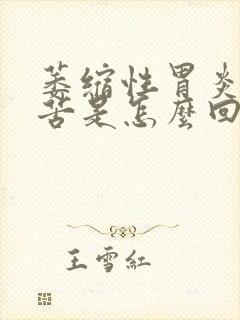 萎缩性胃炎
苦是怎麼回
王雪紅